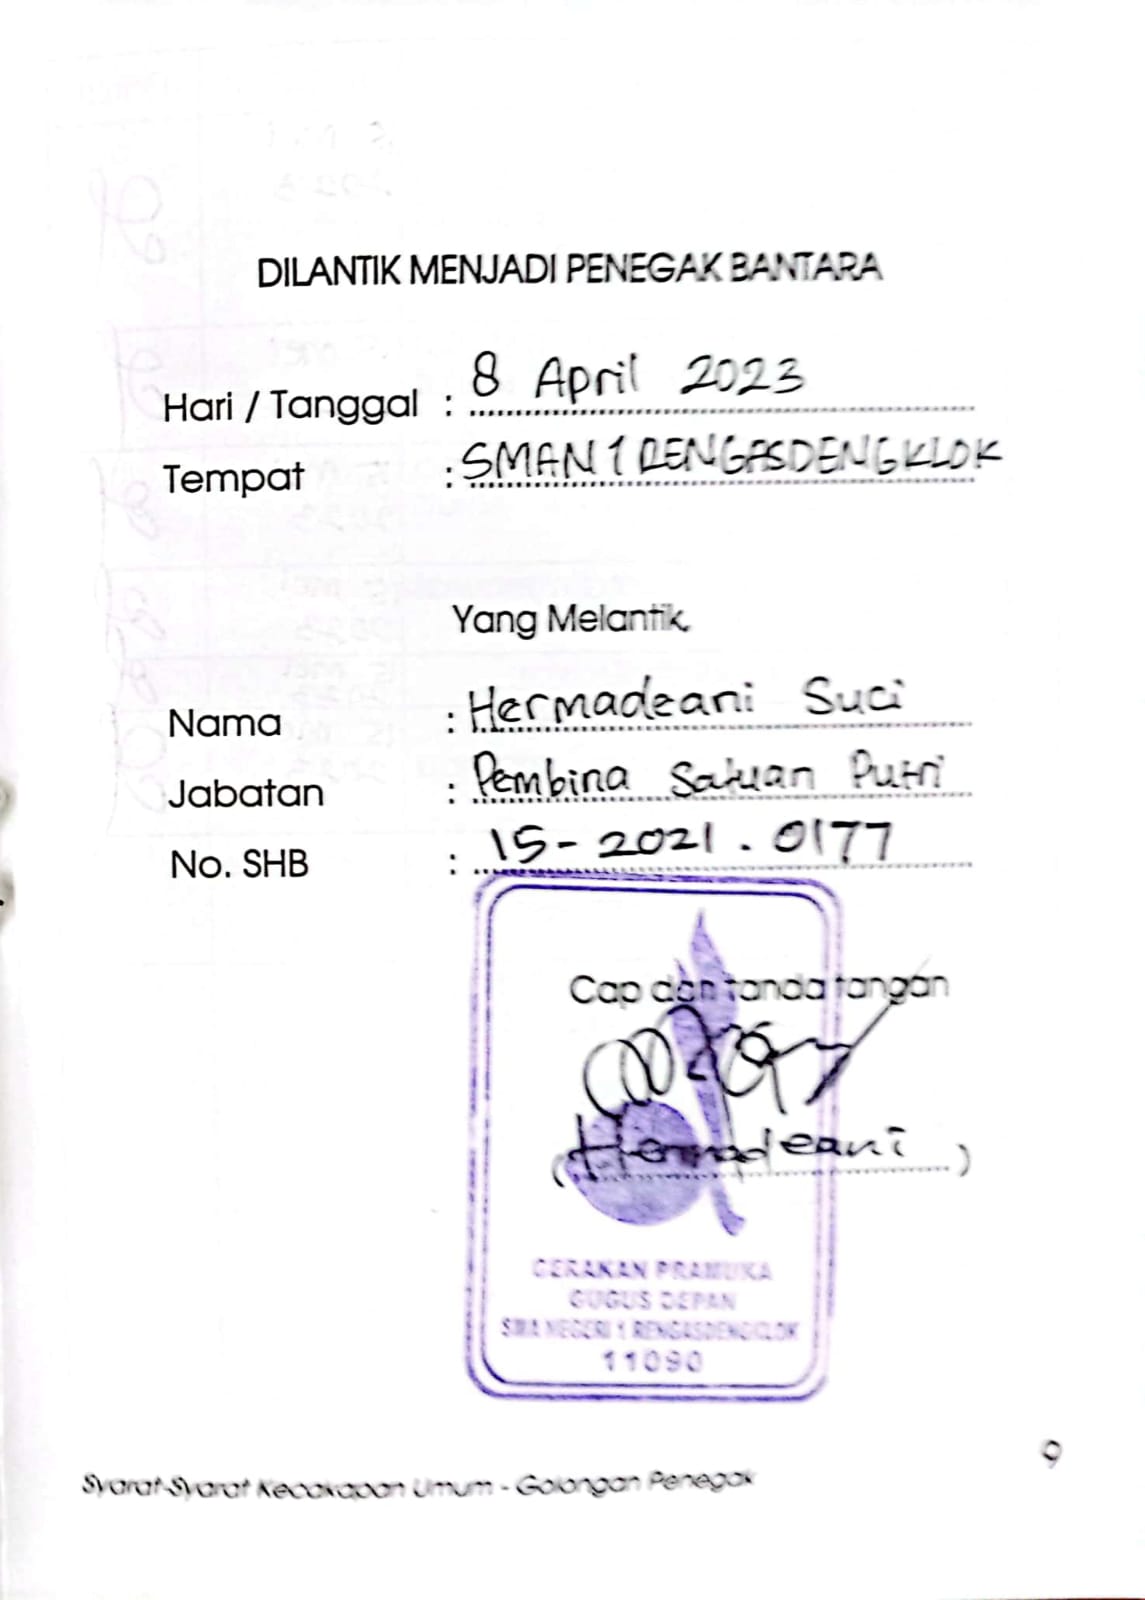 DILANTIK MENJADI PENEGAK BANTARA
Hari / Tanggal : 8 April 2023
Tempat : SMAN 1 RENGASDENGKLOK
Yang Melantik,
Nama : Hermadeani Suci
Jabatan : Pembina Satuan Putri
No. SHB : 15-2021.0177
Cap dan tanda tangan
(Hermadeani)
GERAKAN PRAMUKA
GUGUS DEPAN
SMA NEGERI 1 RENGASDENGKLOK
11090
9
Syarat-Syarat Kecakapan Umum - Golongan Penegak